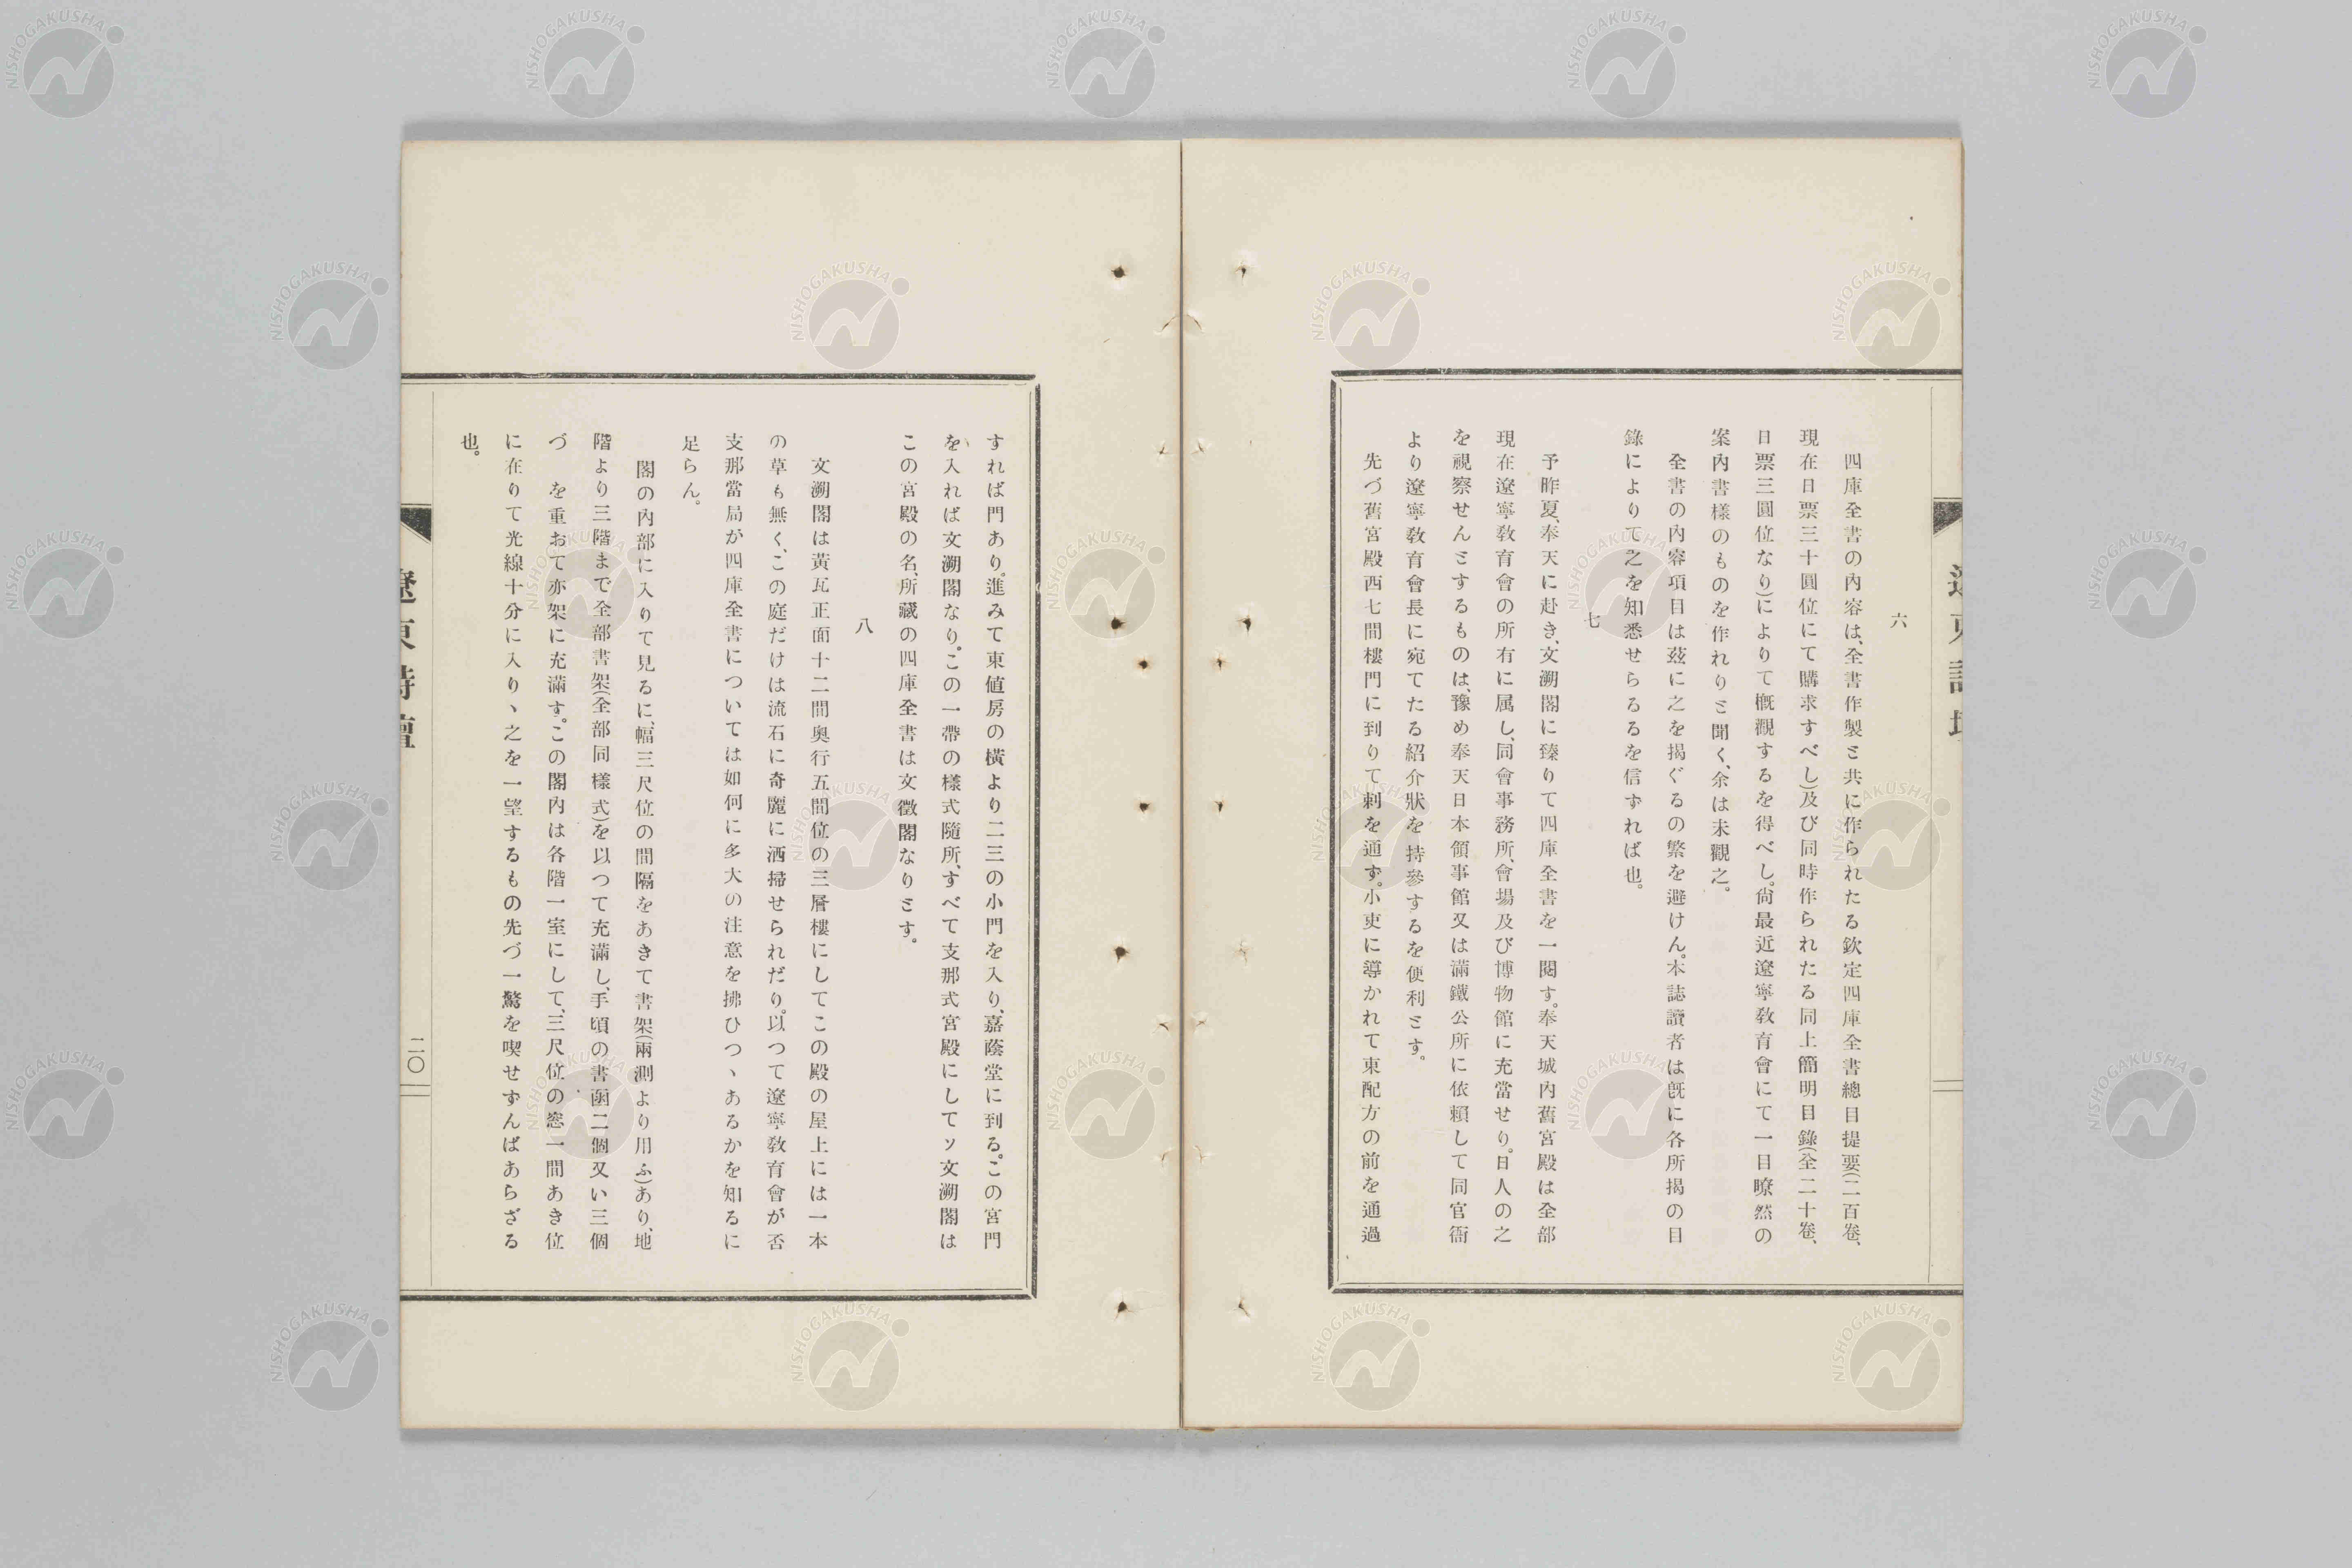 六
四庫全書の內容は、全書作製と共に作られたる欽定四庫全書總目提要(二百卷、
現在日票三十圓位にて購求すべし)及び同時作られたる同上簡明目錄(全二十卷、
日票三圓位なり)によりて槪觀するを得べし。尙最近遼寧敎育會にて一目瞭然の
案內書樣のものを作れりと聞く、余は未觀之。
全書の內容項目は茲に之を揭ぐるの繁を避けん。本誌讀者は旣に各所揭の目
錄によりて之を知悉せらるるを信ずれば也。
七
予昨夏、奉天に赴き、文溯閣に臻りて四庫全書を一閱す。奉天城內舊宮殿は全部
現在遼寧敎育會の所有に属し、同會事務所、會場及び博物館に充當せり。日人の之
を視察せんとするものは、豫め奉天日本領事館又は滿鐵公所に依賴して同官衙
より遼寧敎育會長に宛てたる紹介狀を持參するを便利とす。
先づ舊宮殿西七間樓門に到りて刺を通ず。小吏に導かれて東配方の前を通過
すれば門あり。進みて東値房の橫より二三の小門を入り、嘉蔭堂に到る。この宮門
を入れば文溯閣なり。この一帶の樣式隨所、すべて支那式宮殿にしてソ文溯閣は
この宮殿の名、所藏の四庫全書は文徵閣なりとす。
八
文溯閣は黃瓦正面十二間奧行五間位の三層樓にしてこの殿の屋上には一本
の草も無く、この庭だけは流石に奇麗に洒掃せられだり。以つて遼寧敎育會が否
支那當局が四庫全書については如何に多大の注意を拂ひつヽあるかを知るに
足らん。
閣の內部に入りて見るに、幅三尺位の間隔をあきて書架(兩測より用ふ)あり、地
階より三階まで全部書架(全部同樣式)を以つて充滿し、手頃の書凾二個又い三個
づ　を重おて亦架に充滿す。この閣內は各階一室にして、三尺位の窓一間あき位
に在りて光線十分に入りヽ之を一望するもの先づ一驚を喫せずんばあらざる
也。
遼東詩壇
二〇